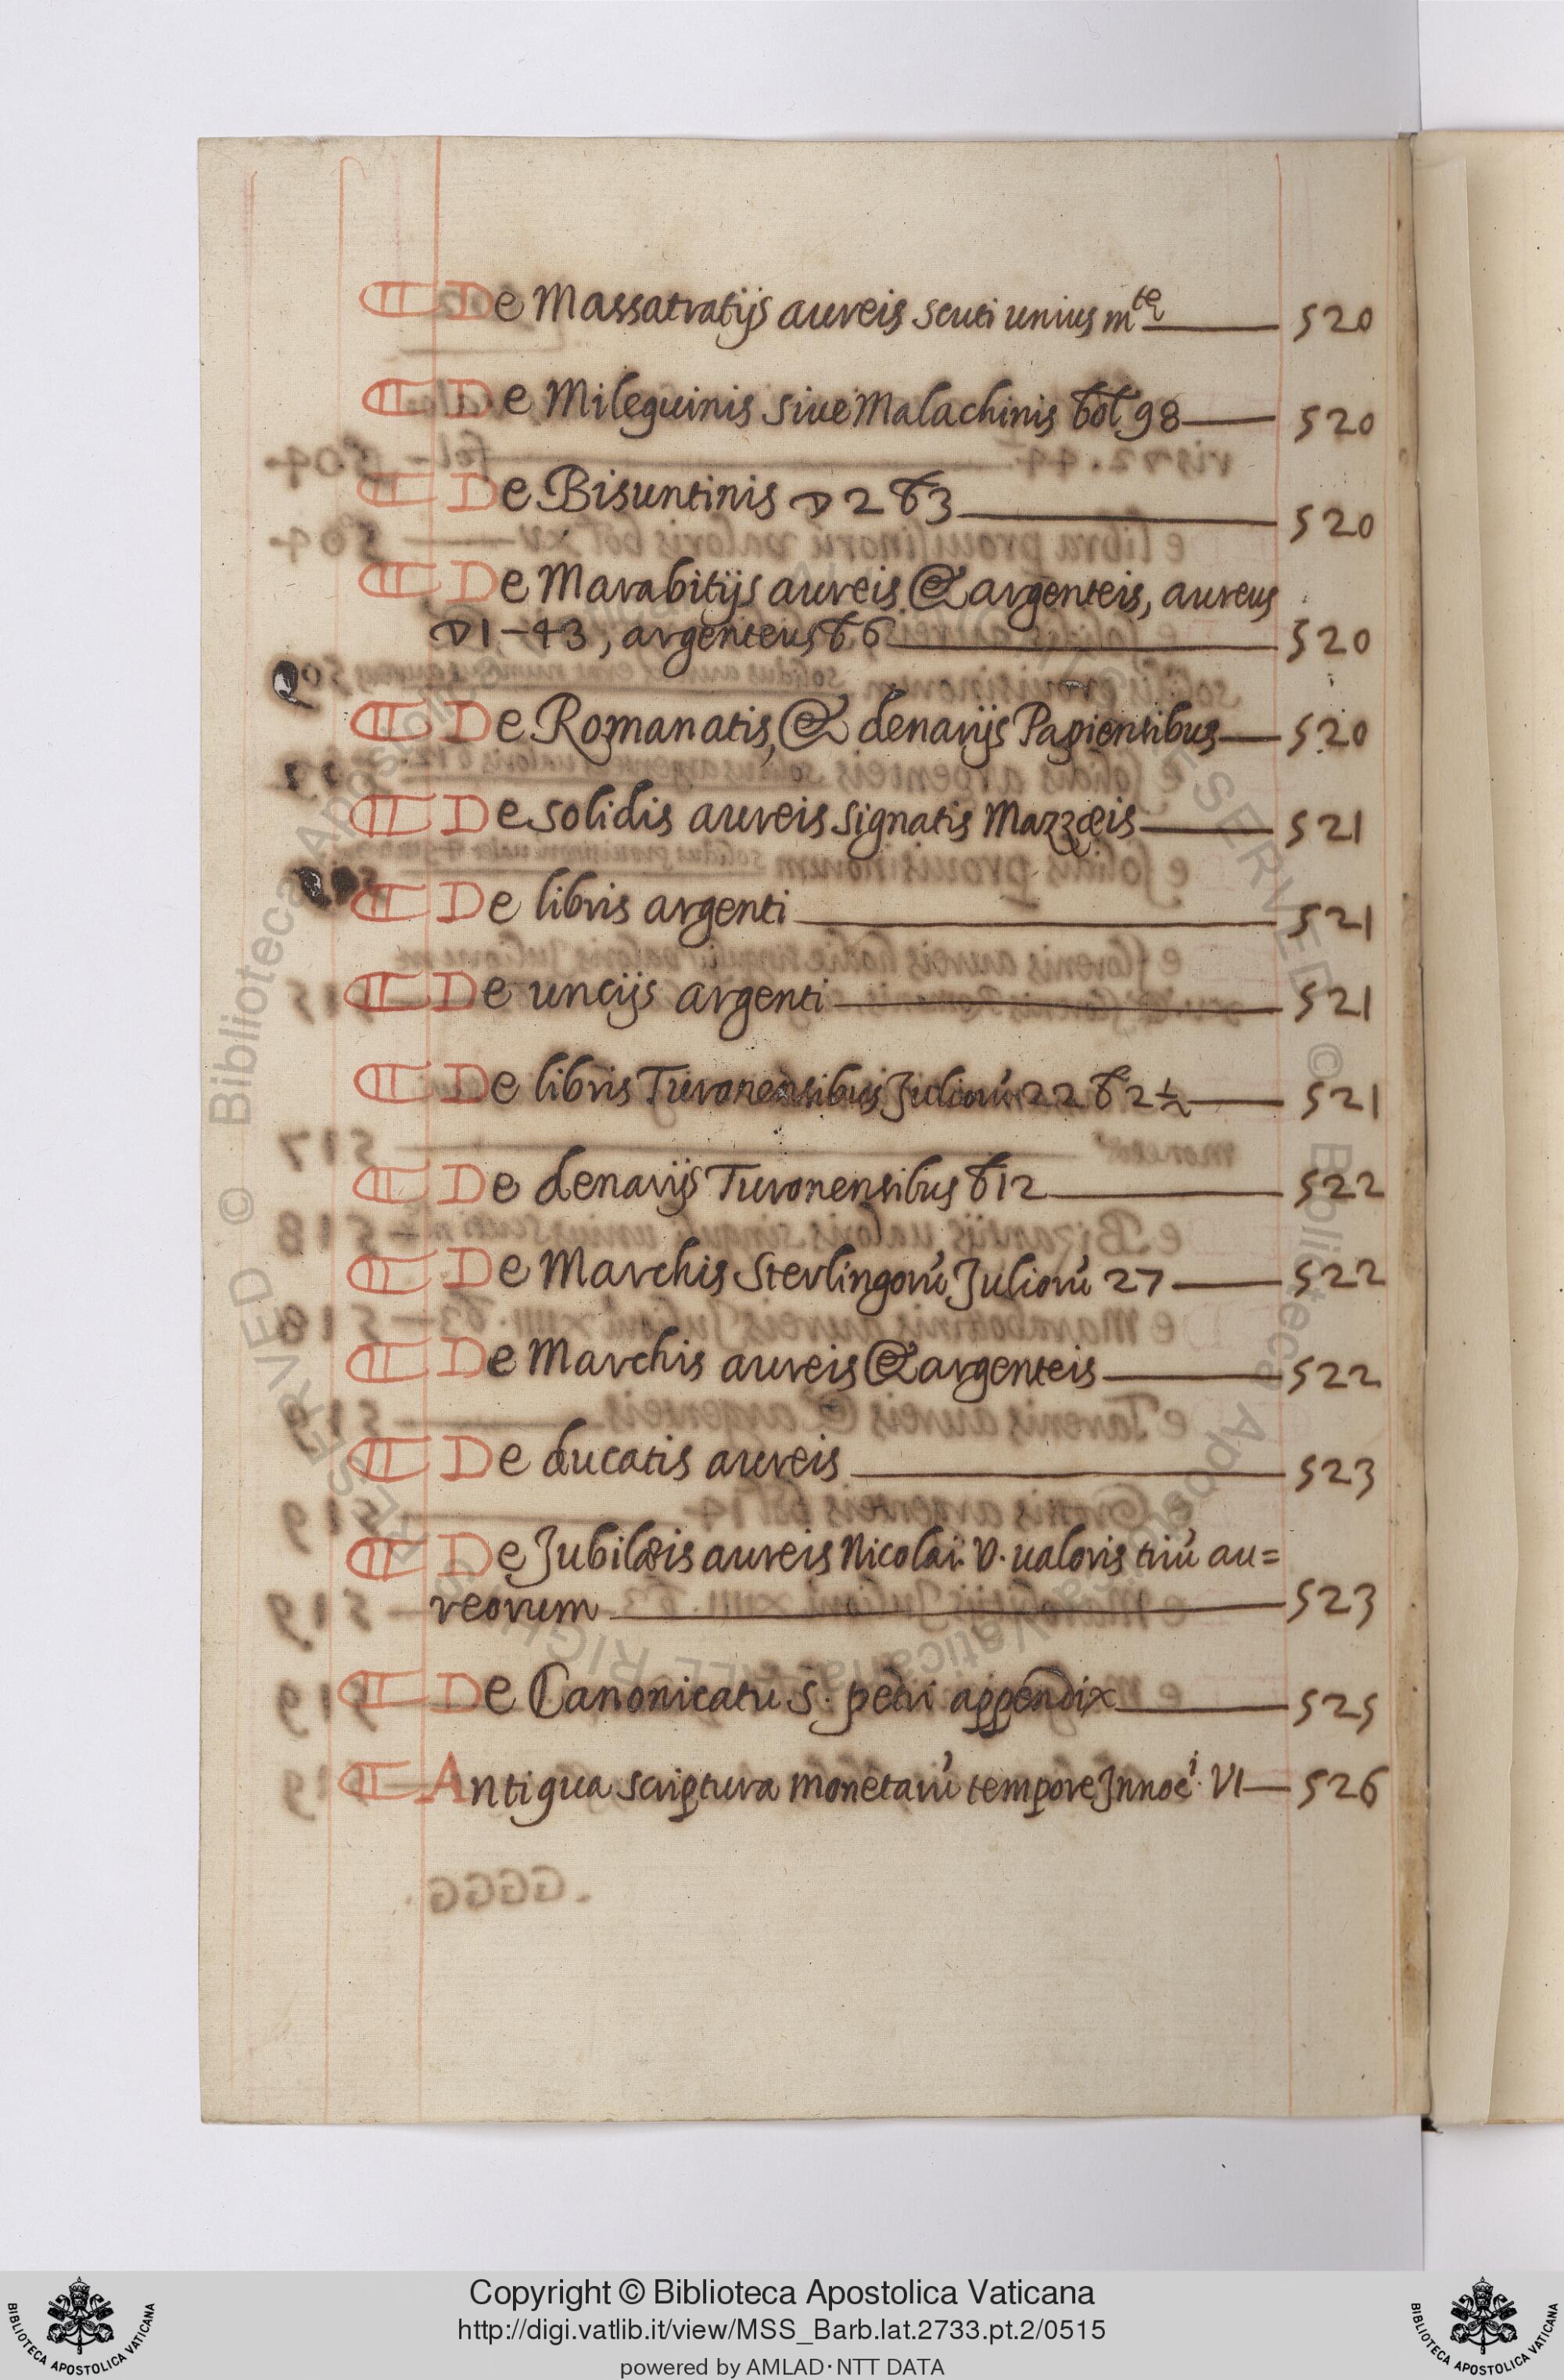 ¶ De Massatratijs aureis scuti unius m^te 520
¶ De Mileguinis siue Malachinis bol 98 520
¶ De Bisuntinis D 2 b 3 520
¶ De Marabitijs aureis & argenteis, aureus
D 1 - 43, argenteus b 6 520
¶ De Romanatis, & denarijs Papiensibus 520
¶ De solidis aureis signatis Mazzæis 521
¶ De libris argenti 521
¶ De uncijs argenti 521
¶ De libris Turonensibus Juliorú 22 b 2½ 521
¶ De denarijs Turonensibus b 12 522
¶ De Marchis Sterlingorú Juliorú 27 522
¶ De Marchis aureis & argenteis 522
¶ De ducatis aureis 523
¶ De Jubilæis aureis Nicolai. V. ualoris triú au=
reorum 523
¶ De Canonicatu S. petri appendix 525
¶ Antiqua scriptura monetarú tempore Innoc^i. VI 526
Copyright © Biblioteca Apostolica Vaticana
http://digi.vatlib.it/view/MSS_Barb.lat.2733.pt.2/0515
powered by AMLAD·NTT DATA
BIBLIOTECA APOSTOLICA VATICANA
BIBLIOTECA APOSTOLICA VATICANA